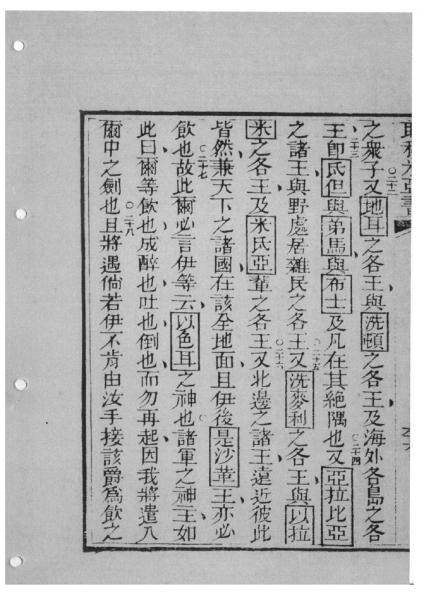 之衆子○二十二又地耳之各王與洗頓之各王及海外各島之各
王○二十三卽氐但與第馬與布士及凡在其絕隅也○二十四又亞拉比亞
之諸王與野處居雜民之各王○二十五又洗麥利之各王與以拉
米之各王及米氐亞輩之各王○二十六又北邊之諸王遠近彼此
皆然兼天下之諸國在該全地面且伊後是沙革王亦必
飲也○二十七故此爾必言伊等云以色耳之神也諸軍之神主如
此曰爾等飲也成醉也吐也倒也而勿再起因我將遣入
爾中之劍也○二十八且將遇倘若伊不肯由汝手接該爵爲飲之